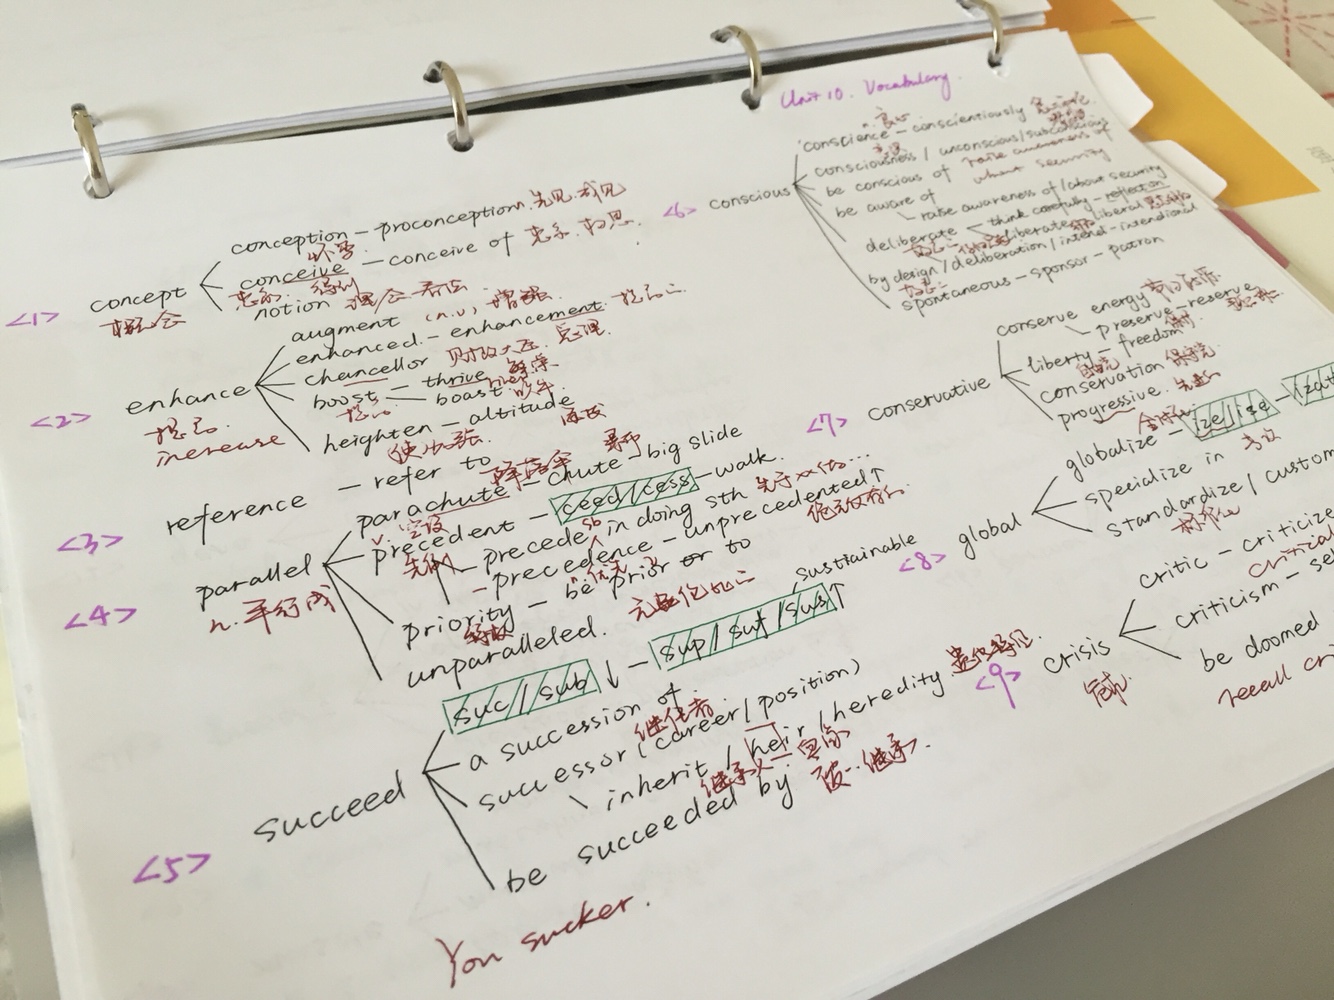 Unit 10. Vocabulary.
<1> concept 概念
conception - proconception. 先见.成见
怀孕
conceive - conceive of 想象.构思
notion 理念
<2> enhance 提高 increase
augment (n.v) 增强
enhanced - enhancement.
chancellor 财政大臣 总理
boost - thrive 繁荣
boast
heighten - altitude 海拔
使加强
<3> reference - refer to
<4> parallel n.平行
parachute - chute - big slide
降落伞
precedent - ceed/cess - walk.
先例
precede sb in doing sth 先于xx做...
- precedence - unprecedented↑
n.优先
priority - be prior or to
特权
unparalleled. 无与伦比
<5> succeed
suc/sub ↓ - sup/suf/sus ↑
sustainable
a succession of
继任者
successor (career/position)
inherit / heir /heredity 遗传特征.
继承
be succeeded by 被..继承.
You sucker.
<6> conscious
conscience - conscientiously
n.
consciousness / unconscious/subconscious
be conscious of raise awareness of
about security
be aware of
raise awareness of/about security
deliberate - think carefully - reflection
liberate liberal
by design/deliberation/intend-intendional
spontaneous - sponsor - patron
<7> conservative
conserve energy 节约能源
preserve - reserve
liberty - freedom
conservation 保守党
progressive.
<8> global
globalize - ize/ise -
specialize in 专攻
standardize / custom
标准化
<9> crisis 危机
critic - criticize
critical
criticism - se
be doomed
recall cri